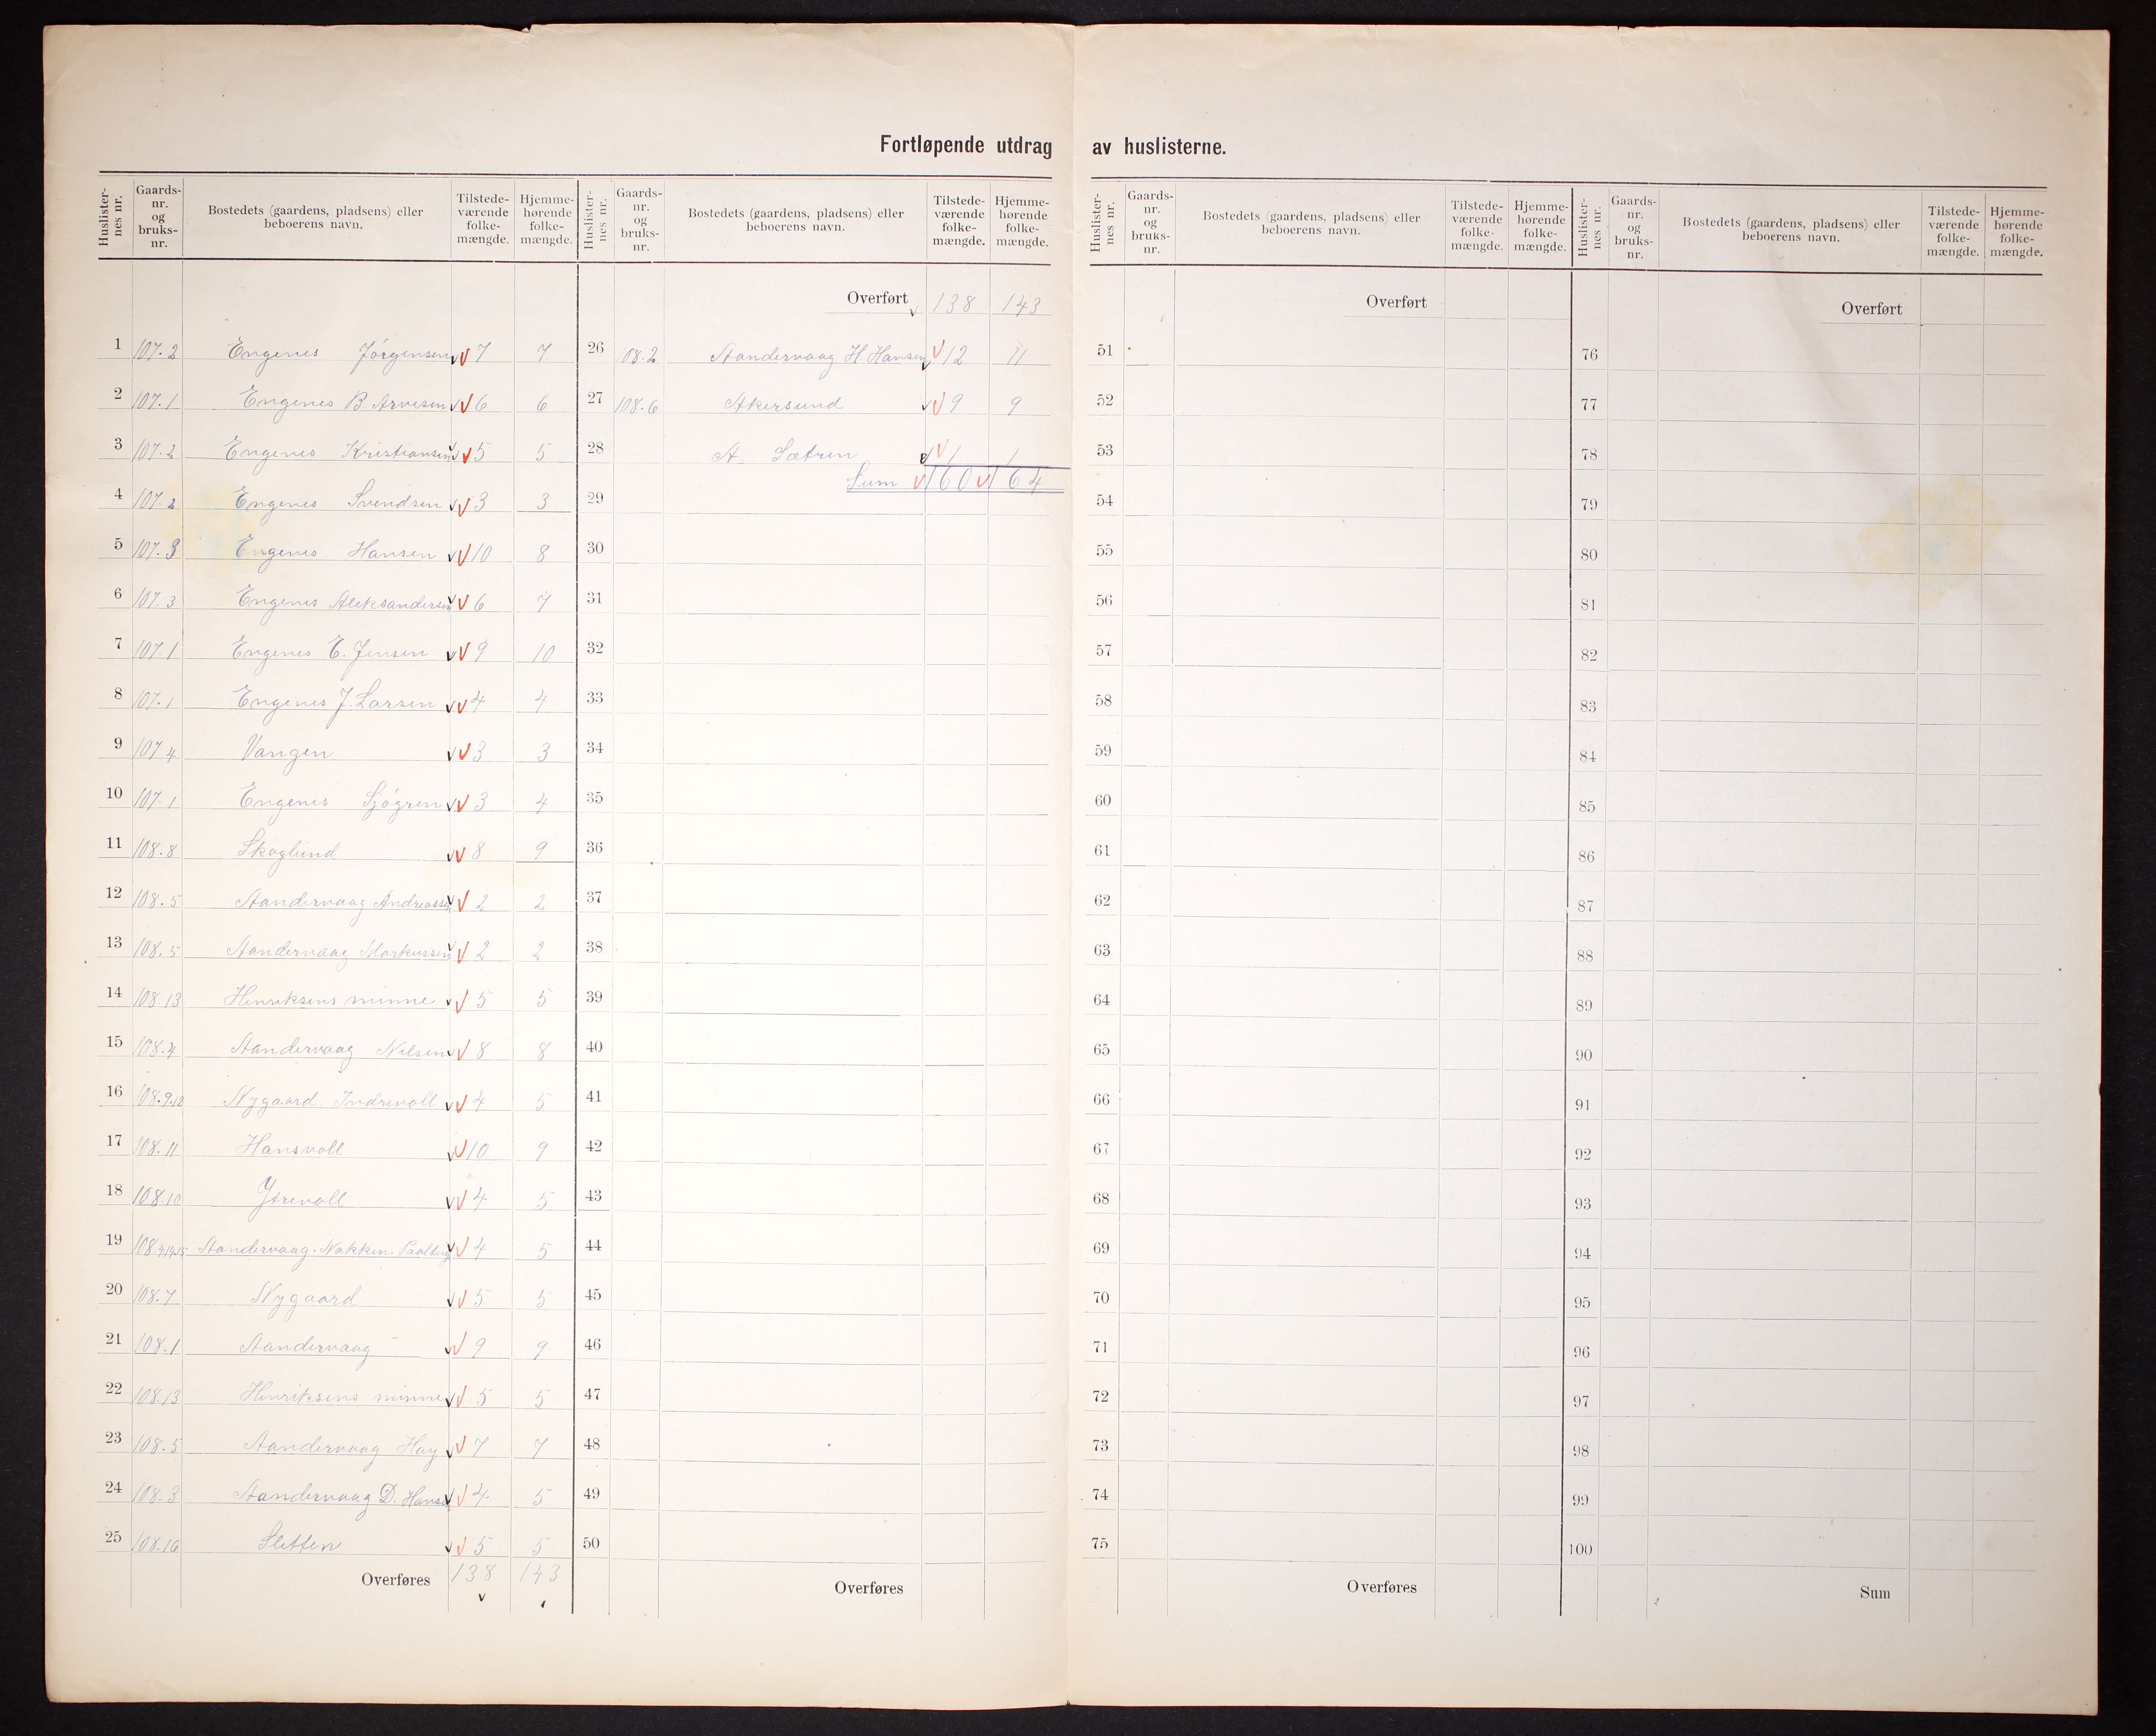 Fortløpende utdrag av huslisterne.
Huslister-nes nr. Gaards-nr. og bruks-nr. Bostedets (gaardens, pladsens) eller beboerens navn. Tilstede-værende folke-mængde. Hjemme-hørende folke-mængde.
1 107.2 Engenes Jörgensen 7 7
2 107.1 Engenes B. Arvesen 6 6
3 107.2 Engenes Kristiansen 5 5
4 107.2 Engenes Svendsen 3 3
5 107.3 Engenes Hansen 10 8
6 107.3 Engenes Aleksandersen 6 7
7 107.1 Engenes E. Jensen 9 10
8 107.1 Engenes J. Larsen 4 4
9 107.4 Vangen 3 3
10 107.1 Engenes Sjögren 3 4
11 108.8 Skoglund 8 9
12 108.5 Aandervaag Andreassen 2 2
13 108.5 Aandervaag Markussen 2 2
14 108.13 Henriksens minne 5 5
15 108.4 Aandervaag Nilsen 8 8
16 108.9.12 Nygaard Indrevoll 4 5
17 108.11 Hansvoll 10 9
18 108.10 Ytrevoll 4 5
19 108 Aandervaag. Nakken. 4 5
20 108.7 Nygaard 5 5
21 108.1 Aandervaag 9 9
22 108.13 Henriksens minne 5 5
23 108.5 Aandervaag Hay 7 7
24 108.3 Aandervaag D. Hansen 4 5
25 108.16 Sletten 5 5
Overføres 138 143
Huslister-nes nr. Gaards-nr. og bruks-nr. Bostedets (gaardens, pladsens) eller beboerens navn. Tilstede-værende folke-mængde. Hjemme-hørende folke-mængde.
Overført 138 143
26 108.2 Aandervaag H. Hansen 12 11
27 108.6 Akersund 9 9
28 A. Sætren 1 1
Sum 160 164
29
30
31
32
33
34
35
36
37
38
39
40
41
42
43
44
45
46
47
48
49
50
Overføres
Huslister-nes nr. Gaards-nr. og bruks-nr. Bostedets (gaardens, pladsens) eller beboerens navn. Tilstede-værende folke-mængde. Hjemme-hørende folke-mængde.
Overført
51
52
53
54
55
56
57
58
59
60
61
62
63
64
65
66
67
68
69
70
71
72
73
74
75
Overføres
Huslister-nes nr. Gaards-nr. og bruks-nr. Bostedets (gaardens, pladsens) eller beboerens navn. Tilstede-værende folke-mængde. Hjemme-hørende folke-mængde.
Overført
76
77
78
79
80
81
82
83
84
85
86
87
88
89
90
91
92
93
94
95
96
97
98
99
100
Sum